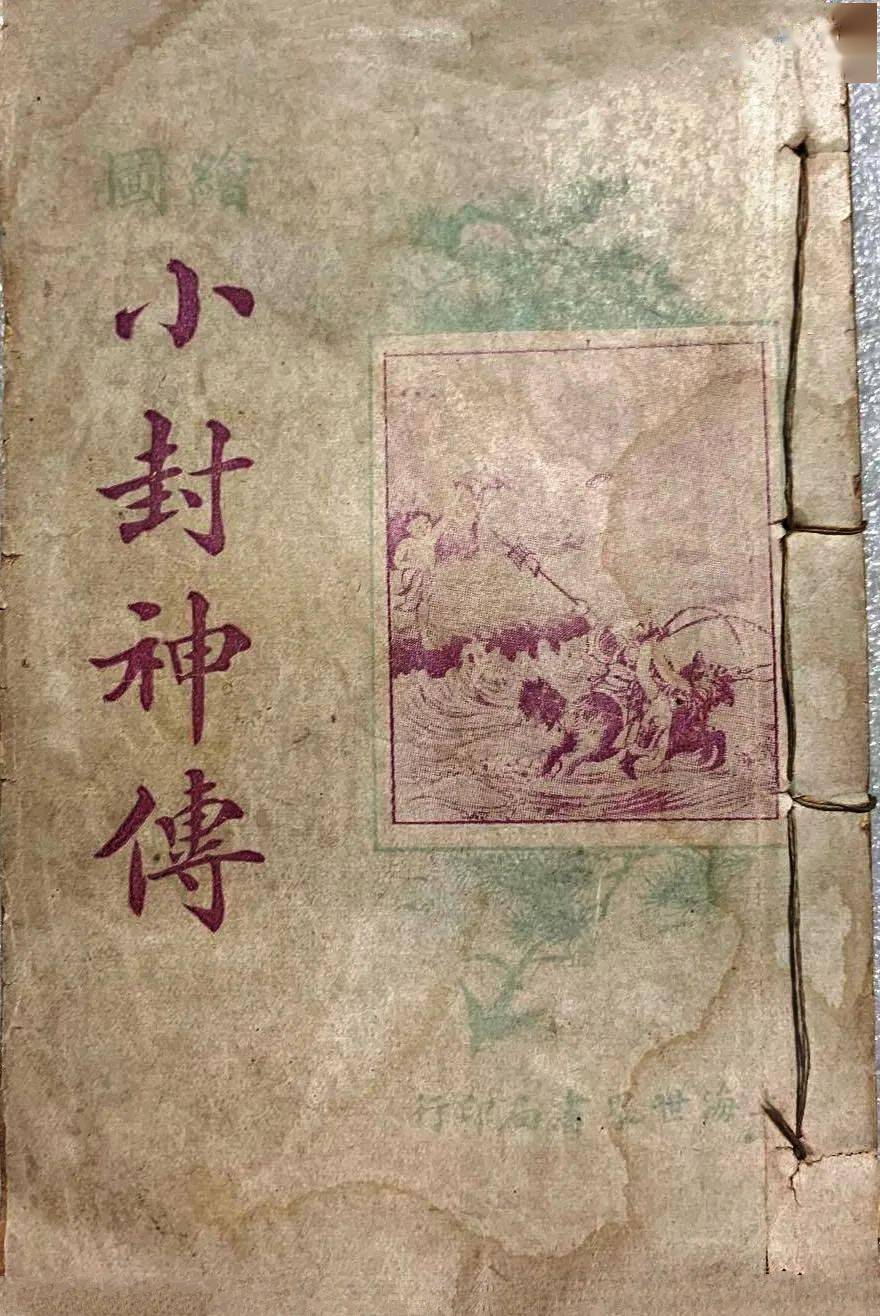 繪圖
小封神傳
海世界書局印行